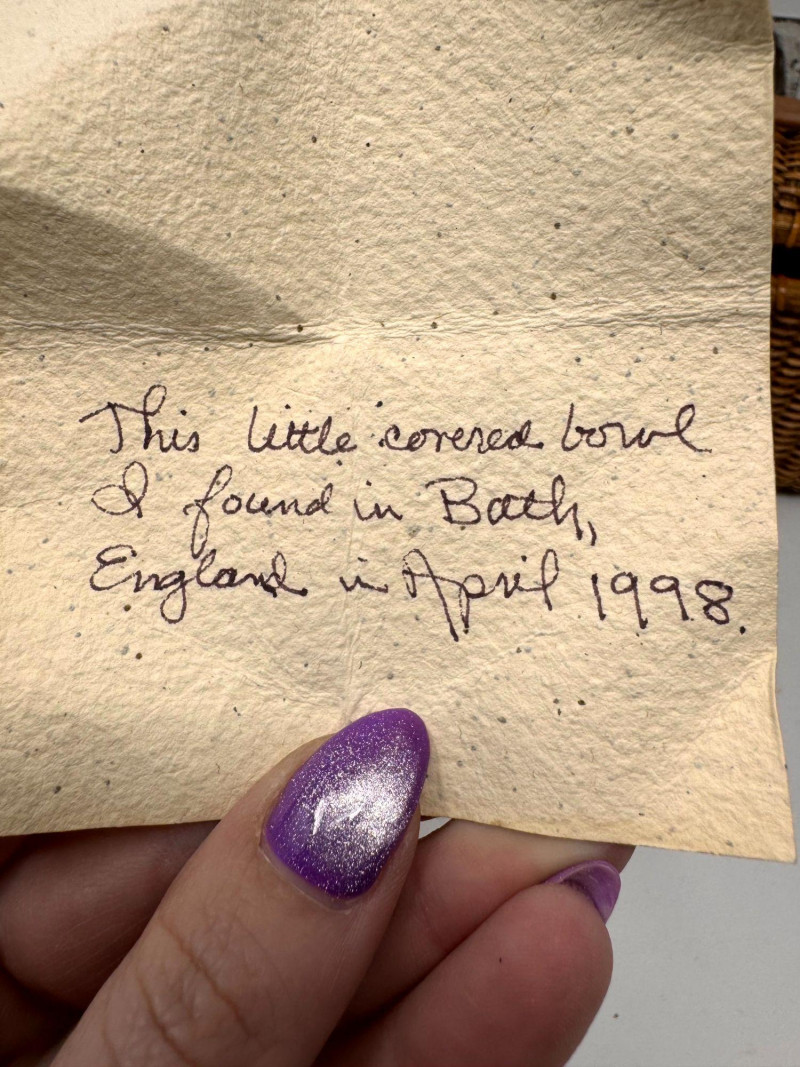 This little covered bowl
I found in Bath,
England in April 1998.